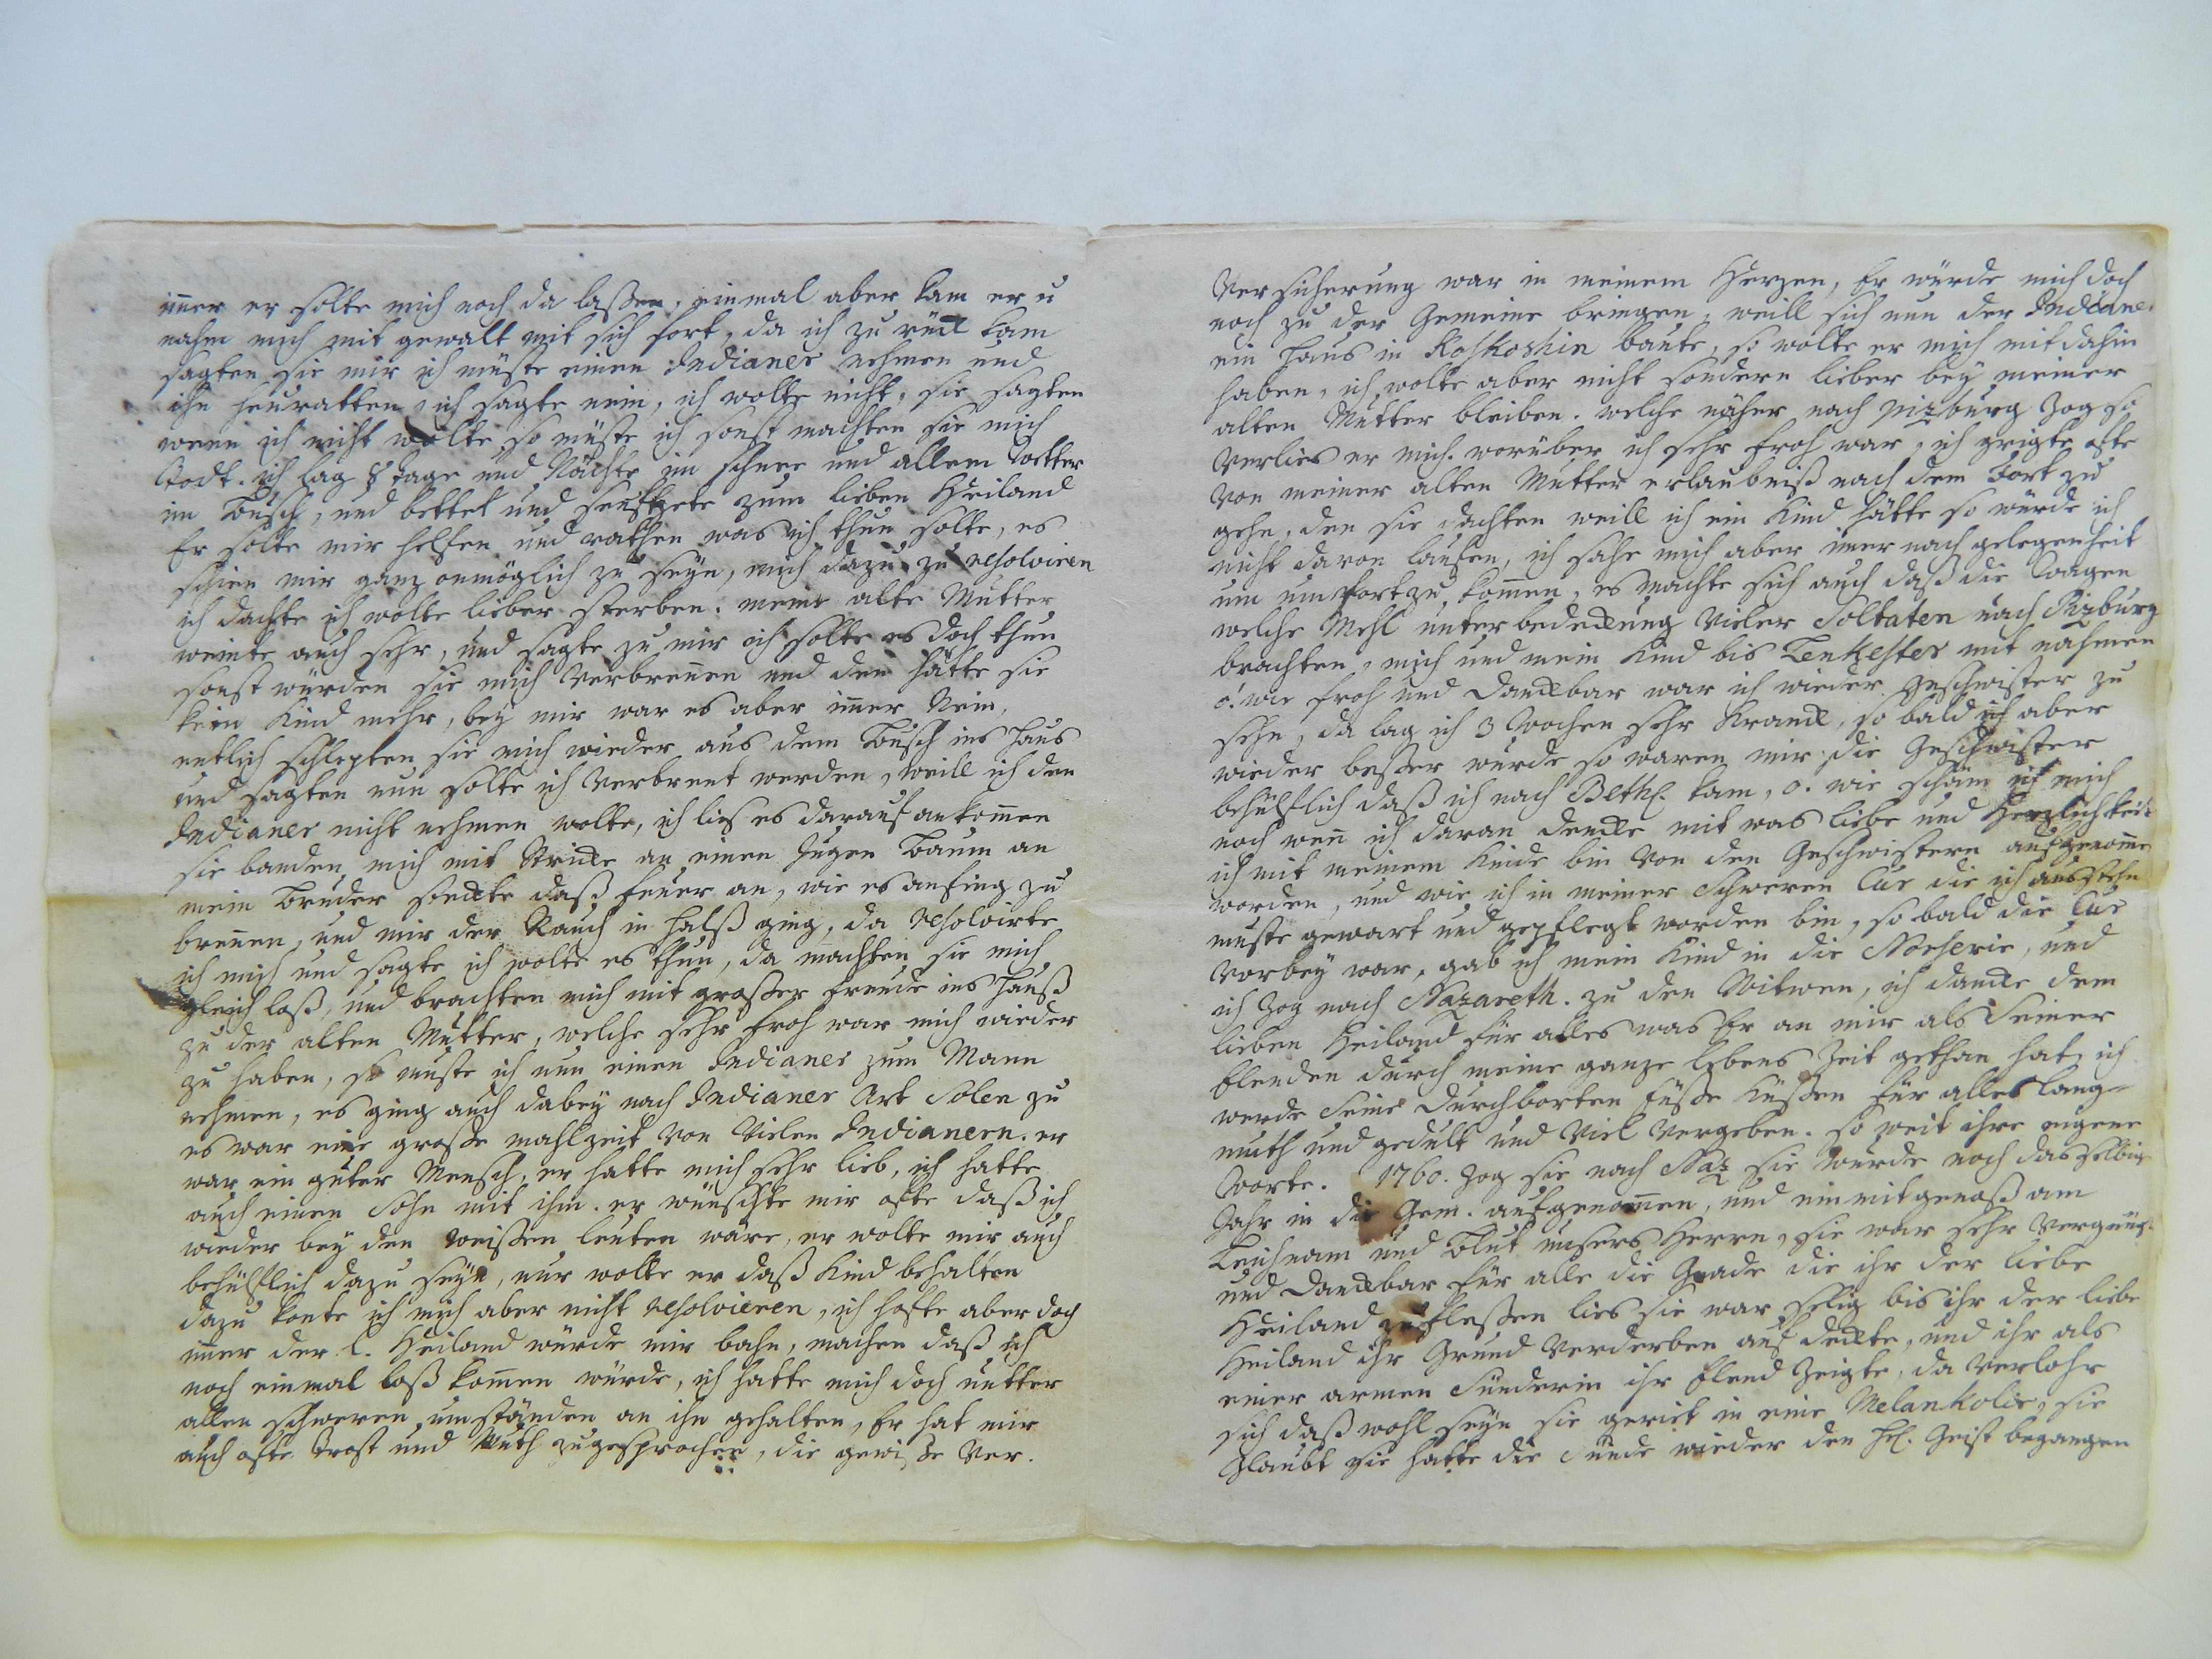 im̅er er solte mich noch da laßen, einmal aber kam er u
nahm mich mit gewalt mit sich fort, da ich zu rück kam
sagten sie mir ich müste einen Indianer nehmen und
ihn heuratten, ich sagte nein, ich wolte nicht, sie sagten
wenn ich nicht wolte, so müste ich sonst machten sie mich
Todt. ich lag 8 tage und Nächte im schnee und allem Wetter
im Busch, und bettet und seufzete zum lieben Heiland
Er solte mir helfen und rathen was ich thun solte, es
schien mir ganz onmöglich zu seyn, mich dazu zu resolviren
ich dachte ich wolte lieber sterben. meine alte Mutter
weinte auch sehr, und sagte zu mir ich solte es doch thun
sonst würden sie mich Verbren̅en und den hätte sie
kein Kind mehr, bey mir war es aber im̅er Nein,
entlich schlepten sie mich wieder aus dem Busch ins Haus
und sagten nun solte ich Verbrent werden, weill ich den
Indianer nicht nehmen wolte, ich lies es darauf ankom̅en
sie banden mich mit Stricke an einen Jugen Baum an
mein Bruder steckte daß feuer an, wie es anfing zu
bren̅en, und mir der Rauch in Halß ging, da resolvirte
ich mich und sagte ich wolte es thun, da machten sie mich
gleich loß, und brachten mich mit großer freude ins Hauß
zu der alten Mutter, welche sehr froh war mich wieder
zu haben, so muste ich nun einen Indianer zum Mann
nehmen, es ging auch dabey nach Indianer Art Solen zu
es war eine große mahlzeit Von Vielen Indianern. er
war ein guter Mensch, er hatte mich sehr lieb, ich hatte
auch einen Sohn mit ihm. er wünschte mir ofte daß ich
wieder bey den weißen leuten wäre, er wolte mir auch
behülflich dazu seyn, nur wolte er daß Kind behalten
dazu konte ich mich aber nicht resolvieren, ich hofte aber doch
im̅er der l. Heiland würde mir bahn, machen daß ich
noch einmal loß kom̅en würde, ich hatte mich doch untter
allen schweren umständen an ihn gehalten, Er hat mir
auch ofte Trost und Muth zugesprochen, die gewiße Ver.
Versicherung war in meinem Herzen, Er würde mich doch
noch zu der Gemeine bringen, weill sich nun der Indianer
ein Haus in Koshkoshin baute, so wolte er mich mit dahin
haben, ich wolte aber nicht sondern lieber bey meiner
alten Mutter bleiben. welche näher nach Pizburg Zog so
Verlies er mich. worüber ich sehr froh war, ich grigte ofte
Von meiner alten Mutter erlaubniß nach dem Fort zu
gehn, den sie dachten weill ich ein Kind hätte so würde ich
nicht davon laufen, ich sahe mich aber im̅er nach gelegenheit
um um fort zu kom̅en, es machte sich auch daß die Wagen
welche Mehl unter bedeckung Vieler Soltaten nach Pizburg
brachten, mich und mein Kind bis Lenkester mit nahmen
o! wie froh und Danckbar war ich wieder Geschwister zu
sehn, da lag ich 3 Wochen sehr Kranck, so bald ich aber
wieder beßer wurde so waren mir die Geschwister
behülflich daß ich nach Bethl. kam, o. wie schäm ich mich
noch wen̅ ich daran dencke mit was liebe und Herzlichkeit
ich mit meinem Kinde bin Von den Geschwistern aufgenom̅e
worden, und wie ich in meiner Schweren Cur die ich ausstehn
muste gewart und gepflegt worden bin, so bald die Cur
Vorbey war, gab ich mein Kind in die Norserie, und
ich Zog nach Nazareth. zu den Witwen, ich dancke dem
lieben Heiland für alles was Er an mir als Seiner
Elenden durch meine ganze lebens Zeit gethan hat, ich
werde Seine Durchborten Füße Küßen für alles lang-
muth und gedult und Viel Vergeben. so weit ihre eigene
Worte. 1760. Zog sie nach Naz sie wurde noch das selbige
Jahr in die Gem. aufgenom̅en, und ein mitgenoß am
Leichnam und Blut unsers Herrn, sie war sehr Vergnügt
und Danckbar für alle die Gnade die ihr der liebe
Heiland zufleßen lies sie war selig bis ihr der liebe
Heiland ihr Grund Verderben auf deckte, und ihr als
einer armen Sünderin ihr Elend Zeigte, da Verlohr
sich daß wohl seyn sie geriet in eine Melankolie, sie
Glaubt sie hätte die Sünde wieder den Hl. Geist begangen